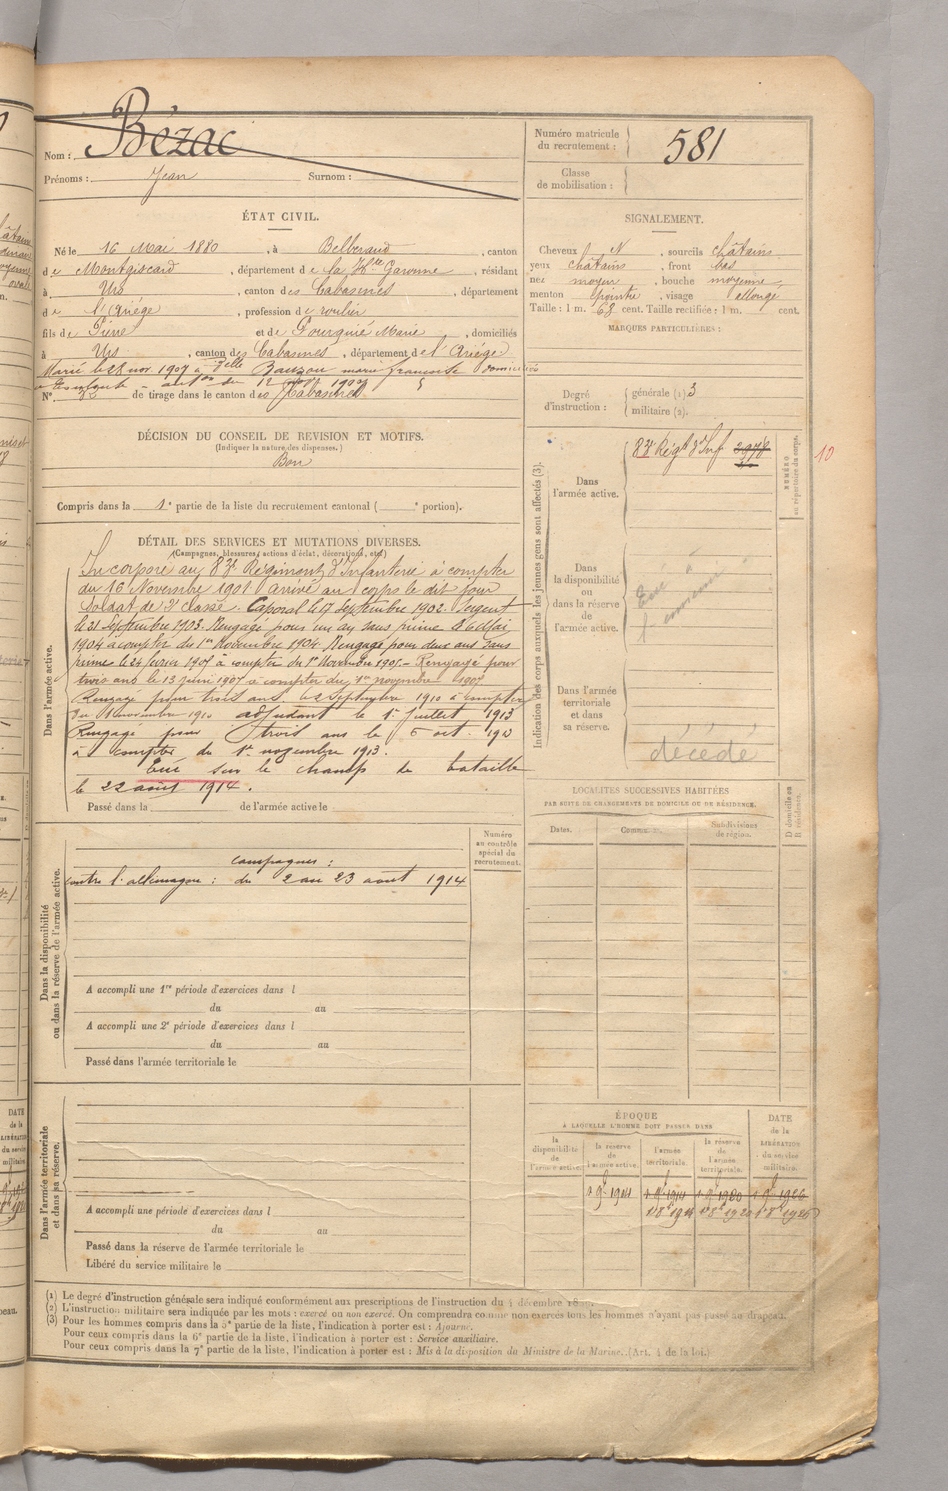 Nom : Bézac
Prénoms : Jean Surnom :
Numéro matricule du recrutement : 581
Classe de mobilisation :
ÉTAT CIVIL.
Né le 16 Mai 1880, à Belberaud, canton
de Montgiscard, département de la Hte Garonne, résidant
à Urs, canton des Cabannes, département
de l'Ariège, profession de
fils de Pierre et de Marie, domiciliés
à Urs, canton des Cabannes, département de l'Ariège
Marié le 28 nov. 1907 à Delle Bauzou marie françoise domiciliée
12 1907
N° de tirage dans le canton des Cabannes
SIGNALEMENT.
Cheveux N, sourcils châtains
yeux châtains, front bas
nez moyen, bouche moyenne,
menton pointu, visage allongé
Taille : 1 m. 68 cent. Taille rectifiée : 1 m. cent.
MARQUES PARTICULIÈRES :
Degré d'instruction : générale (1) 3
militaire (2).
DÉCISION DU CONSEIL DE REVISION ET MOTIFS.
(Indiquer la nature des dispenses.)
Bon
Compris dans la 1e partie de la liste du recrutement cantonal ( e portion).
DÉTAIL DES SERVICES ET MUTATIONS DIVERSES.
(Campagnes, blessures, actions d'éclat, décorations, etc.)
Dans l'armée active.
Incorporé au 83e Régiment d'Infanterie à compter
du 16 Novembre 1901 arrivé au corps le dit jour
Soldat de 2e classe. Caporal le 17 Septembre 1902. Sergent
le 21 Septembre 1903. Rengagé pour un an sans prime le 6 Mai
1904 à compter du 1er Novembre 1904. Rengagé pour deux ans sans
prime le 24 février 1905 à compter du 1er Novembre 1905. Rengagé pour
trois ans le 13 juin 1907 à compter du 1er novembre 1907.
Rengagé pour trois ans le 2 Septembre 1910 à compter
du 1 novembre 1910 adjudant le 1er Juillet 1913
Rengagé pour trois ans le 6 oct. 1913
à compter du 1er novembre 1913.
Tué sur le champ de bataille
le 22 août 1914.
Passé dans la de l'armée active le
Indication des corps auxquels les jeunes gens sont affectés (3).
Dans l'armée active.
83e Régt d'Inf. 2978
NUMÉRO au répertoire du corps.
10
Dans la disponibilité ou dans la réserve de l'armée active.
Tué à l'ennemi
Dans l'armée territoriale et dans sa réserve.
décédé
LOCALITÉS SUCCESSIVES HABITÉES
PAR SUITE DE CHANGEMENTS DE DOMICILE OU DE RÉSIDENCE.
Dates. Communes. Subdivisions de région. D domicile ou R résidence.
Numéro au contrôle spécial du recrutement.
Dans la disponibilité ou dans la réserve de l'armée active.
campagnes :
contre l'allemagne : du 2 au 23 août 1914
A accompli une 1re période d'exercices dans l
du au
A accompli une 2e période d'exercices dans l
du au
Passé dans l'armée territoriale le
Dans l'armée territoriale et dans sa réserve.
A accompli une période d'exercices dans l
du au
Passé dans la réserve de l'armée territoriale le
Libéré du service militaire le
ÉPOQUE
À LAQUELLE L'HOMME DOIT PASSER DANS
la disponibilité de l'armée active.
la réserve de l'armée active.
l'armée territoriale.
la réserve de l'armée territoriale.
DATE de la LIBÉRATION du service militaire.
(1) Le degré d'instruction générale sera indiqué conformément aux prescriptions de l'instruction du 4 décembre
(2) L'instruction militaire sera indiquée par les mots : exercé ou non exercé. On comprendra comme non exercés tous les hommes n'ayant pas passé au drapeau.
(3) Pour les hommes compris dans la 5e partie de la liste, l'indication à porter est : Ajourné.
Pour ceux compris dans la 6e partie de la liste, l'indication à porter est : Service auxiliaire.
Pour ceux compris dans la 7e partie de la liste, l'indication à porter est : Mis à la disposition du Ministre de la Marine. (Art. 4 de la loi.)